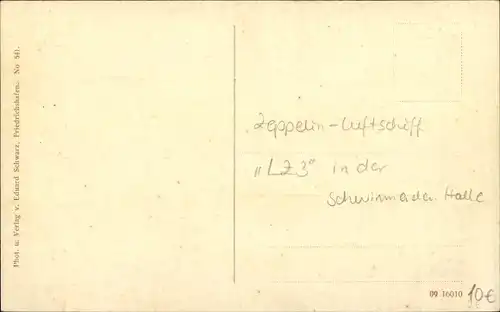 Phot. u. Verlag v. Eduard Schwarz, Friedrichshafen. No 50.
Zeppelin-Luftschiff
„LZ3" in der
Schwimmenden Halle
09 16010
10€